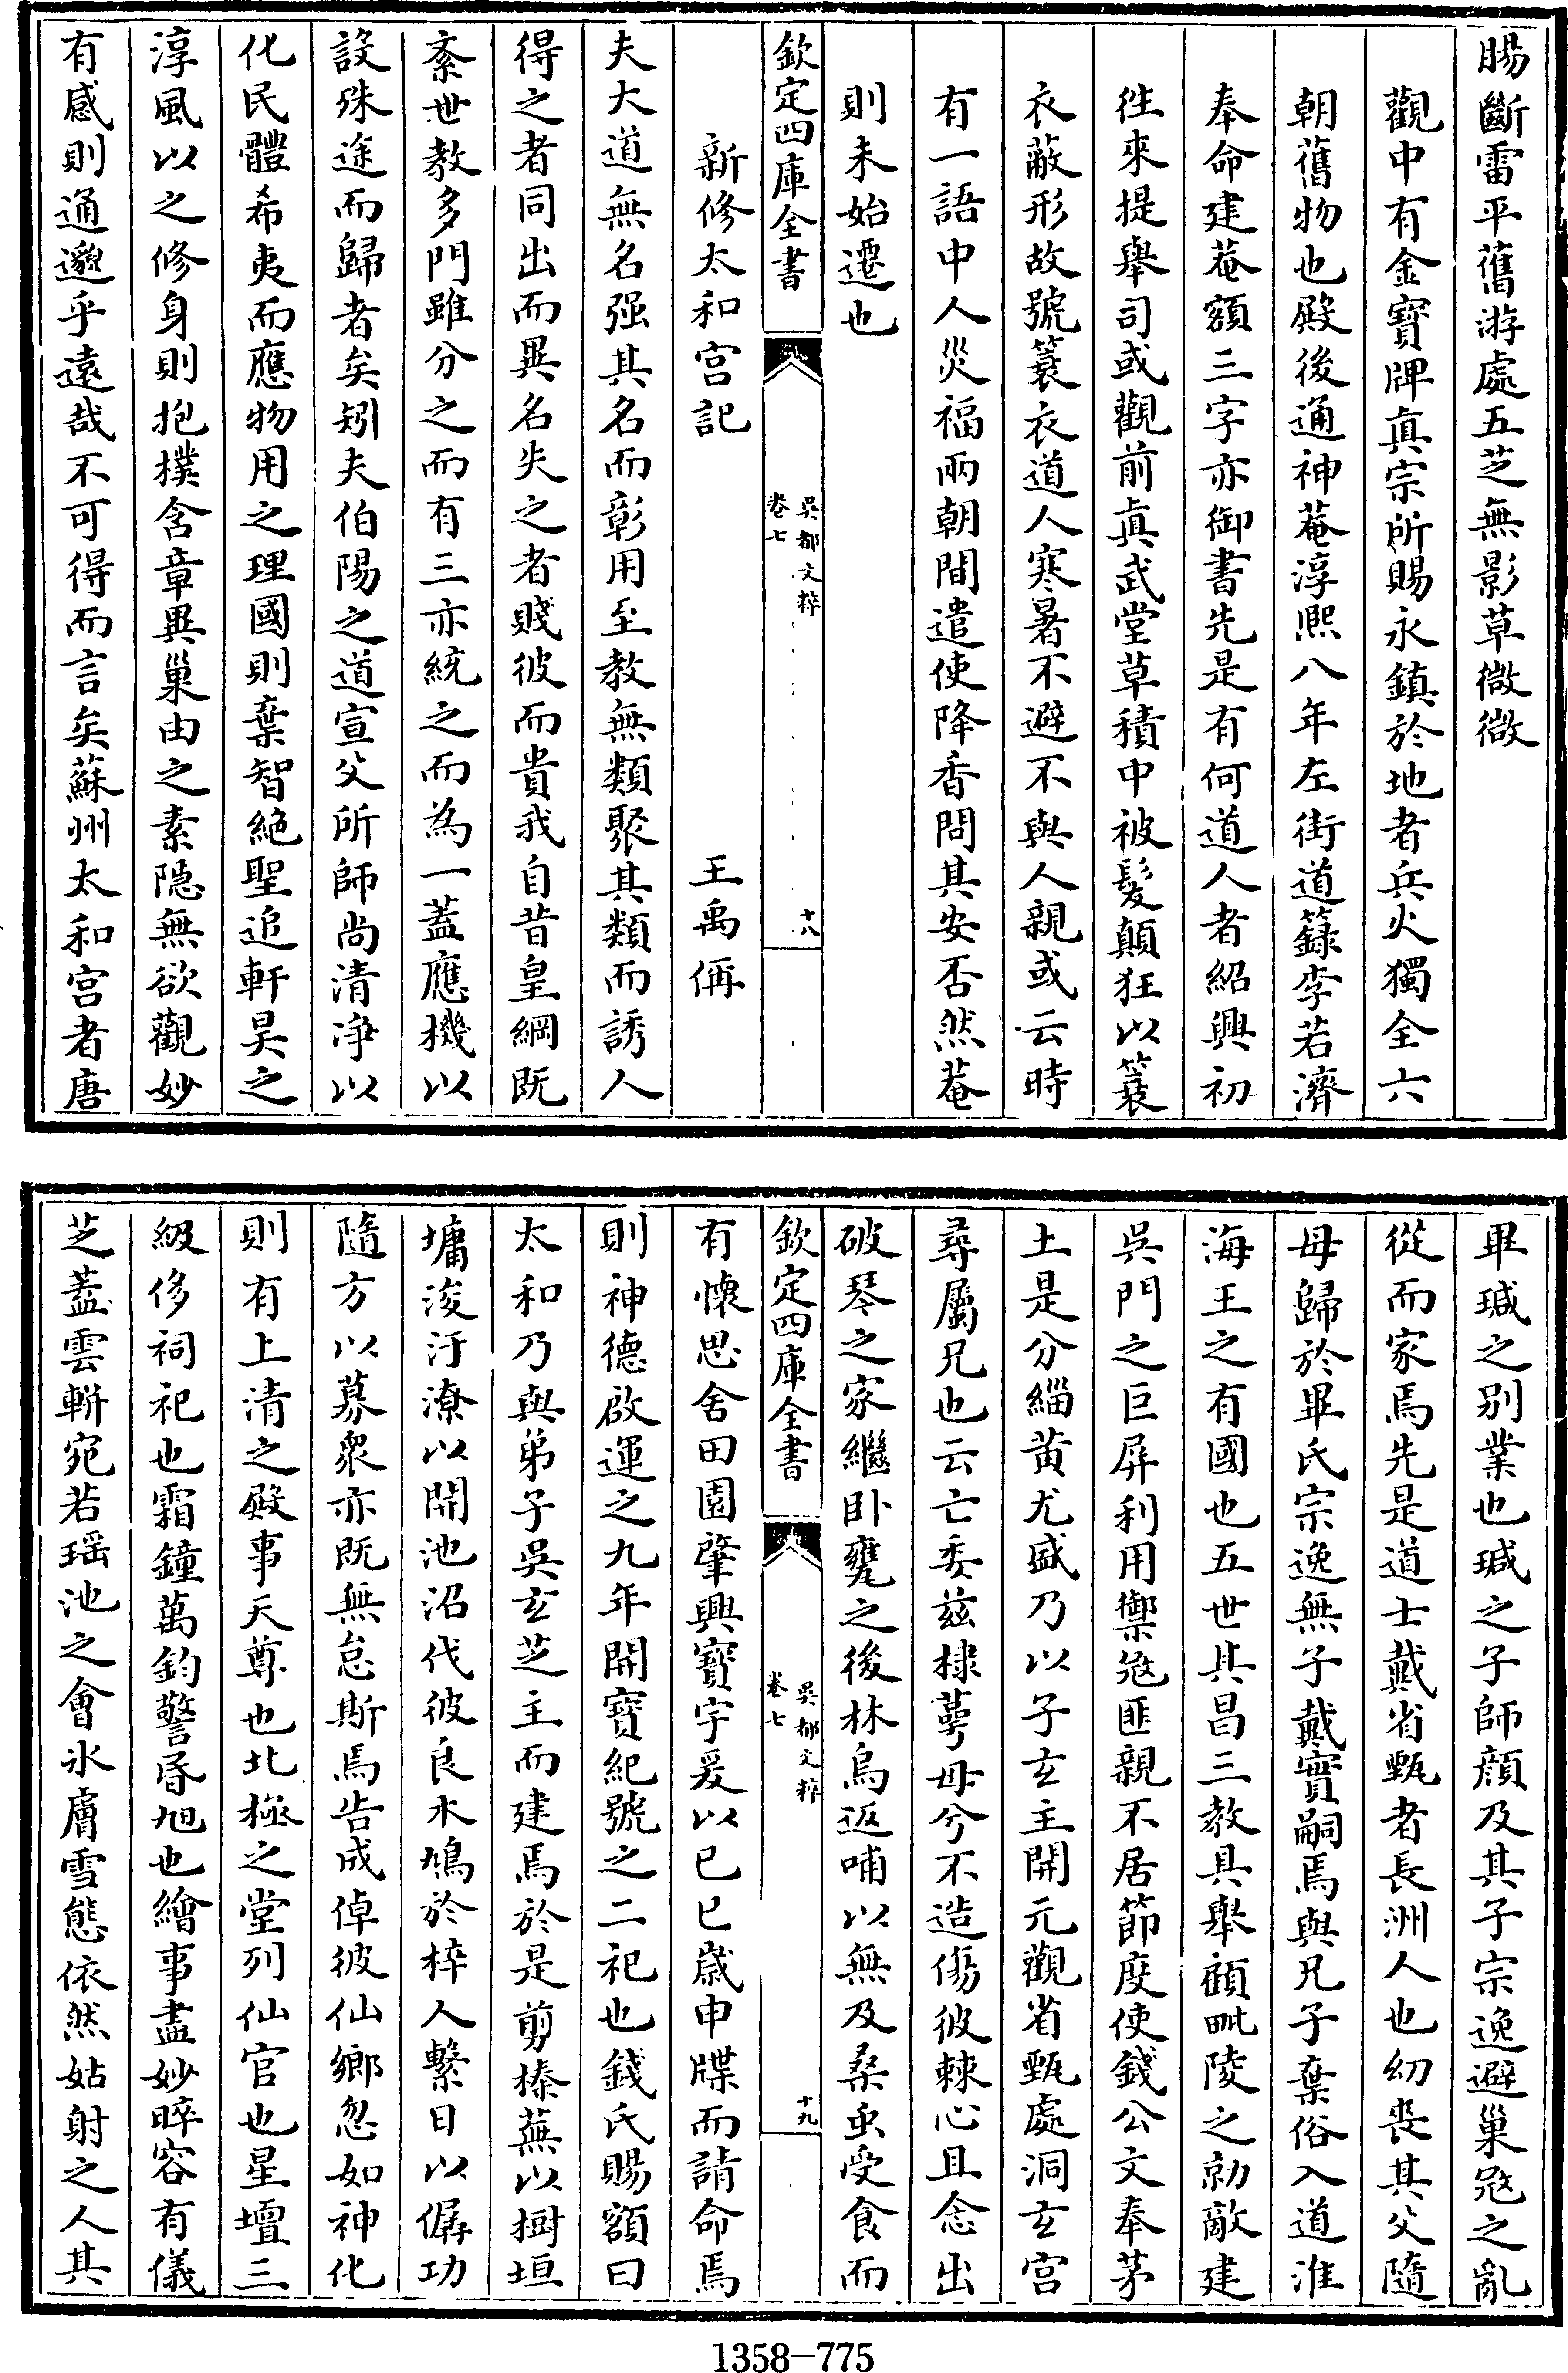 賜斷雷平舊游處五芝無影草微微
觀中有金寶牌眞宗所賜永鎮於地者兵火獨全六
朝舊物也殿後通神菴淳熈八年左街道籙李若濟
奉命建菴額三字亦御書先是有何道人者紹興初
徃來提舉司或觀前眞武堂草積中被髮顛狂以蓑
衣蔽形故號蓑衣道人寒暑不避不與人親或云時
有一語中人災福兩朝間遣使降香問其安否然菴
則未始遷也
欽定四庫全書
吳都文粹
卷七
十八
新修太和宫記
王禹偁
夫大道無名强其名而彰用至教無類聚其類而誘人
得之者同出而異名失之者賤彼而貴我自昔皇綱既
紊世教多門雖分之而有三亦統之而為一蓋應機以
設殊途而歸者矣矧夫伯陽之道宣父所師尚清净以
化民體希夷而應物用之理國則棄智絶聖追軒昊之
淳風以之修身則抱樸含章異巢由之素隠無欲觀妙
有感則通邈乎遠哉不可得而言矣蘇州太和宫者唐
畢瑊之别業也瑊之子師顔及其子宗逸避巢宼之亂
從而家焉先是道士戴省甄者長洲人也幼喪其父隨
母歸於畢氏宗逸無子戴實嗣焉與兄子棄俗入道淮
海王之有國也五世其昌三教具舉顧毗陵之勍敵建
吳門之巨屏利用禦宼匪親不居節度使錢公文奉茅
土是分緇黄尤盛乃以子玄主開元觀省甄處洞玄宫
尋屬兄也云亡委兹棣萼母兮不造傷彼棘心且念出
破琴之家繼卧甕之後林烏返哺以無及桑虫受食而
欽定四庫全書
吳都文粹
卷七
十九
有懷思舍田園肇興寶宇爰以已巳嵗申牒而請命焉
則神德啟運之九年開寳紀號之二祀也錢氏賜額曰
太和乃與弟子吳玄芝主而建焉於是剪榛蕪以樹垣
墉浚汙潦以開池沼伐彼良木鳩於梓人繫日以僝功
隨方以募衆亦既無怠斯焉告成倬彼仙鄉忽如神化
則有上清之殿事天尊也北極之堂列仙官也星壇三
級侈祠祀也霜鐘萬鈞警昏旭也繪事盡妙睟容有儀
芝蓋雲軿宛若瑶池之會氷膚雪態依然姑射之人其
1358-775